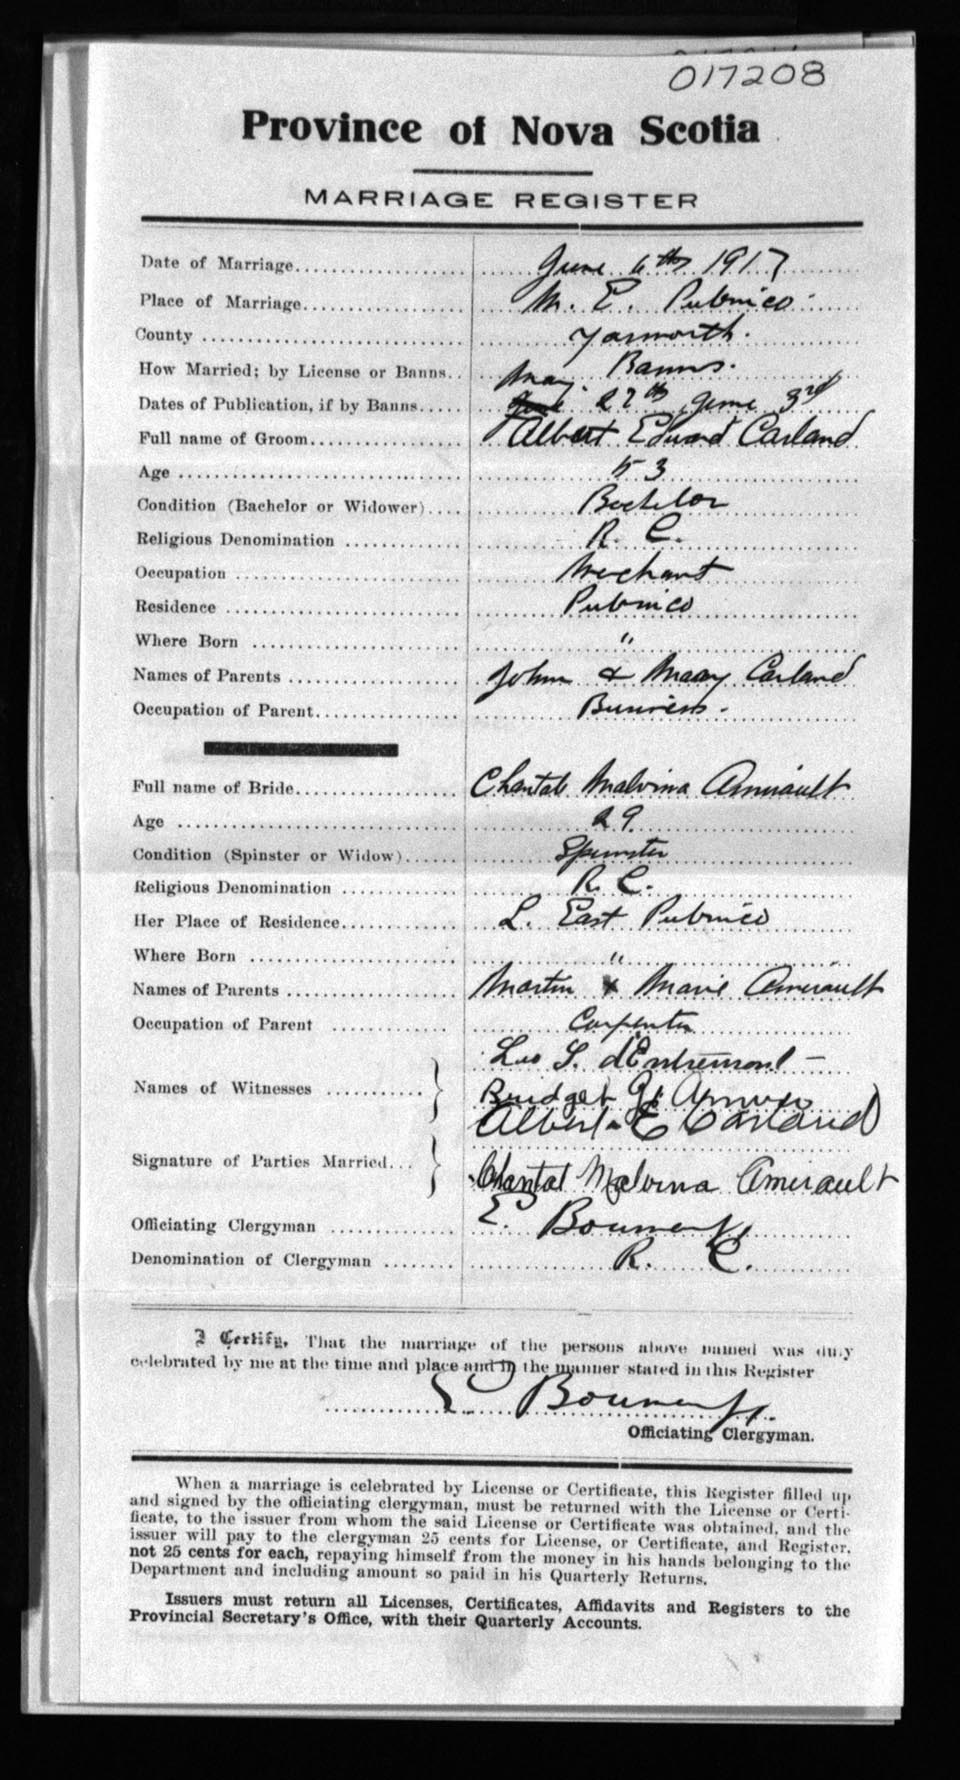 017208
Province of Nova Scotia
MARRIAGE REGISTER
Date of Marriage.................... June 6th 1917
Place of Marriage................... M. E. Pubnico
County ............................. Yarmouth.
How Married; by License or Banns.. Banns.
May.
Dates of Publication, if by Banns..... 27th June 3rd
Full name of Groom.................. Albert Edward Carland
Age ................................ 53
Condition (Bachelor or Widower).... Bachelor
Religious Denomination ............. R. C.
Occupation ......................... Merchant
Residence .......................... Pubnico
Where Born ......................... "
Names of Parents ................... John & Mary Carland
Occupation of Parent................ Business.
Full name of Bride.................. Chantal Malvina Amirault
Age ................................ 29
Condition (Spinster or Widow)...... Spinster
Religious Denomination ............. R. C.
Her Place of Residence............. L. East Pubnico
Where Born ......................... "
Names of Parents ................... Martin & Marie Amirault
Occupation of Parent ............... Carpenter
Leo S. d'Entremont
Names of Witnesses ...........
Albert E Carland
Signature of Parties Married...
Chantal Malvina Amirault
Officiating Clergyman .............. E.
Denomination of Clergyman ........ R. C.
I Certify, That the marriage of the persons above named was duly
celebrated by me at the time and place and in the manner stated in this Register
E.
Officiating Clergyman.
When a marriage is celebrated by License or Certificate, this Register filled up
and signed by the officiating clergyman, must be returned with the License or Certi-
ficate, to the issuer from whom the said License or Certificate was obtained, and the
issuer will pay to the clergyman 25 cents for License, or Certificate, and Register,
not 25 cents for each, repaying himself from the money in his hands belonging to the
Department and including amount so paid in his Quarterly Returns.
Issuers must return all Licenses, Certificates, Affidavits and Registers to the
Provincial Secretary's Office, with their Quarterly Accounts.